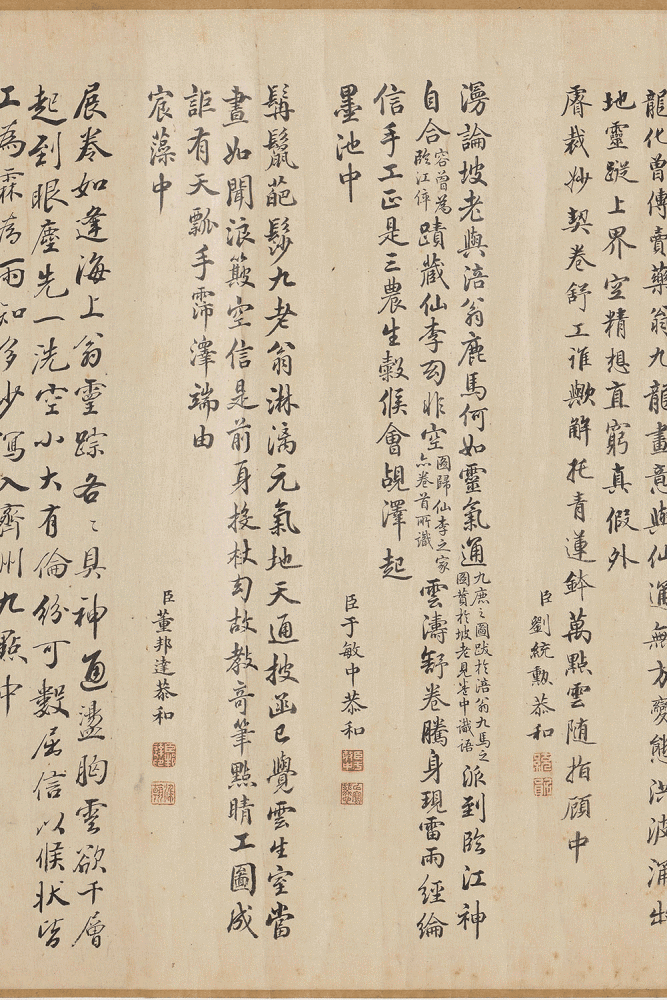 龍化曾傳賣藥翁九龍畫竟與仙通無方變態洪波涌出
地靈蹤上界空精想直窮真假外
睿裁妙契卷舒工誰歟解托青蓮鉢萬點雲随指顧中
臣劉統勲恭和
漫論坡老與涪翁鹿馬何如靈氣通九鹿之圖跋於涪翁九馬之圖贊於坡老見卷中識語派到臨江神
自合容曾為臨江倅蹟藏仙李匄非空圖歸仙李之家亦卷首所識雲濤舒卷騰身現雷雨經綸
信手工正是三農生穀候會覘澤起
墨池中
臣于敏中恭和
髯鬛葩髿九老翁淋漓元氣地天通披函已覺雲生室當
晝如聞浪簸空信是前身投杖匄故教奇筆點睛工圖成
詎有天瓢手霈澤端由
宸藻中
臣董邦達恭和
展卷如逢海上翁靈踪各〻具神通盪胸雲欲千層
起到眼塵先一洗空小大有倫紛可數屈信以候狀皆
工為霖為雨知多少寫入齊州九點中